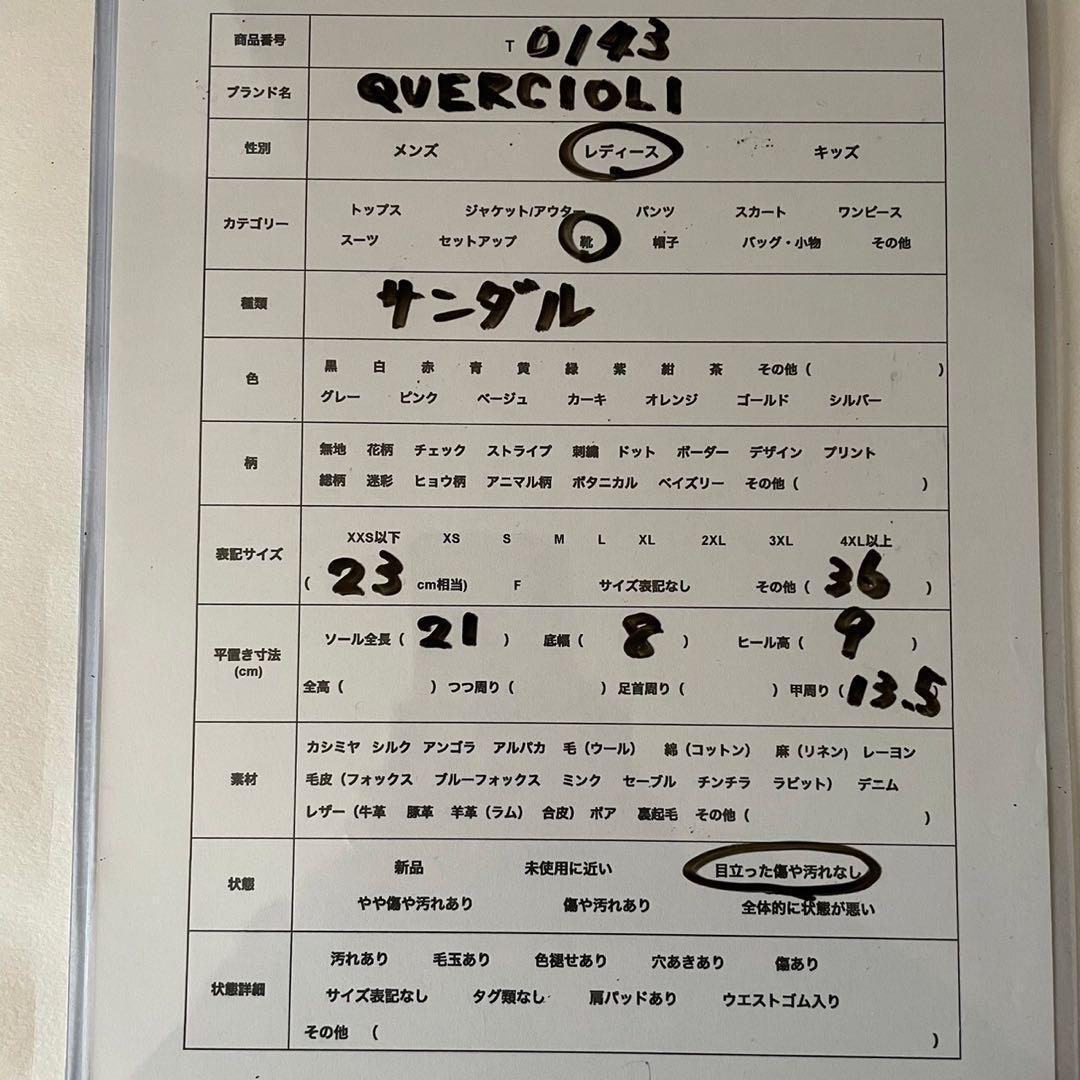 商品番号 T 0143
ブランド名 QUERCIOLI
性別 メンズ レディース キッズ
カテゴリー
トップス ジャケット/アウター パンツ スカート ワンピース
スーツ セットアップ 靴 帽子 バッグ・小物 その他
種類 サンダル
色
黒 白 赤 青 黄 緑 紫 紺 茶 その他 ( )
グレー ピンク ベージュ カーキ オレンジ ゴールド シルバー
柄
無地 花柄 チェック ストライプ 刺繍 ドット ボーダー デザイン プリント
総柄 迷彩 ヒョウ柄 アニマル柄 ボタニカル ペイズリー その他 ( )
表記サイズ
XXS以下 XS S M L XL 2XL 3XL 4XL以上
( 23 cm相当) F サイズ表記なし その他 ( 36 )
平置き寸法
(cm)
ソール全長 ( 21 ) 底幅 ( 8 ) ヒール高 ( 9 )
全高 ( ) つつ周り ( ) 足首周り ( ) 甲周り ( 13.5
素材
カシミヤ シルク アンゴラ アルパカ 毛（ウール） 綿（コットン） 麻（リネン） レーヨン
毛皮（フォックス ブルーフォックス ミンク セーブル チンチラ ラビット） デニム
レザー（牛革 豚革 羊革（ラム） 合皮） ボア 裏起毛 その他 ( )
状態
新品 未使用に近い 目立った傷や汚れなし
やや傷や汚れあり 傷や汚れあり 全体的に状態が悪い
状態詳細
汚れあり 毛玉あり 色褪せあり 穴あきあり 傷あり
サイズ表記なし タグ類なし 肩パッドあり ウエストゴム入り
その他 ( )